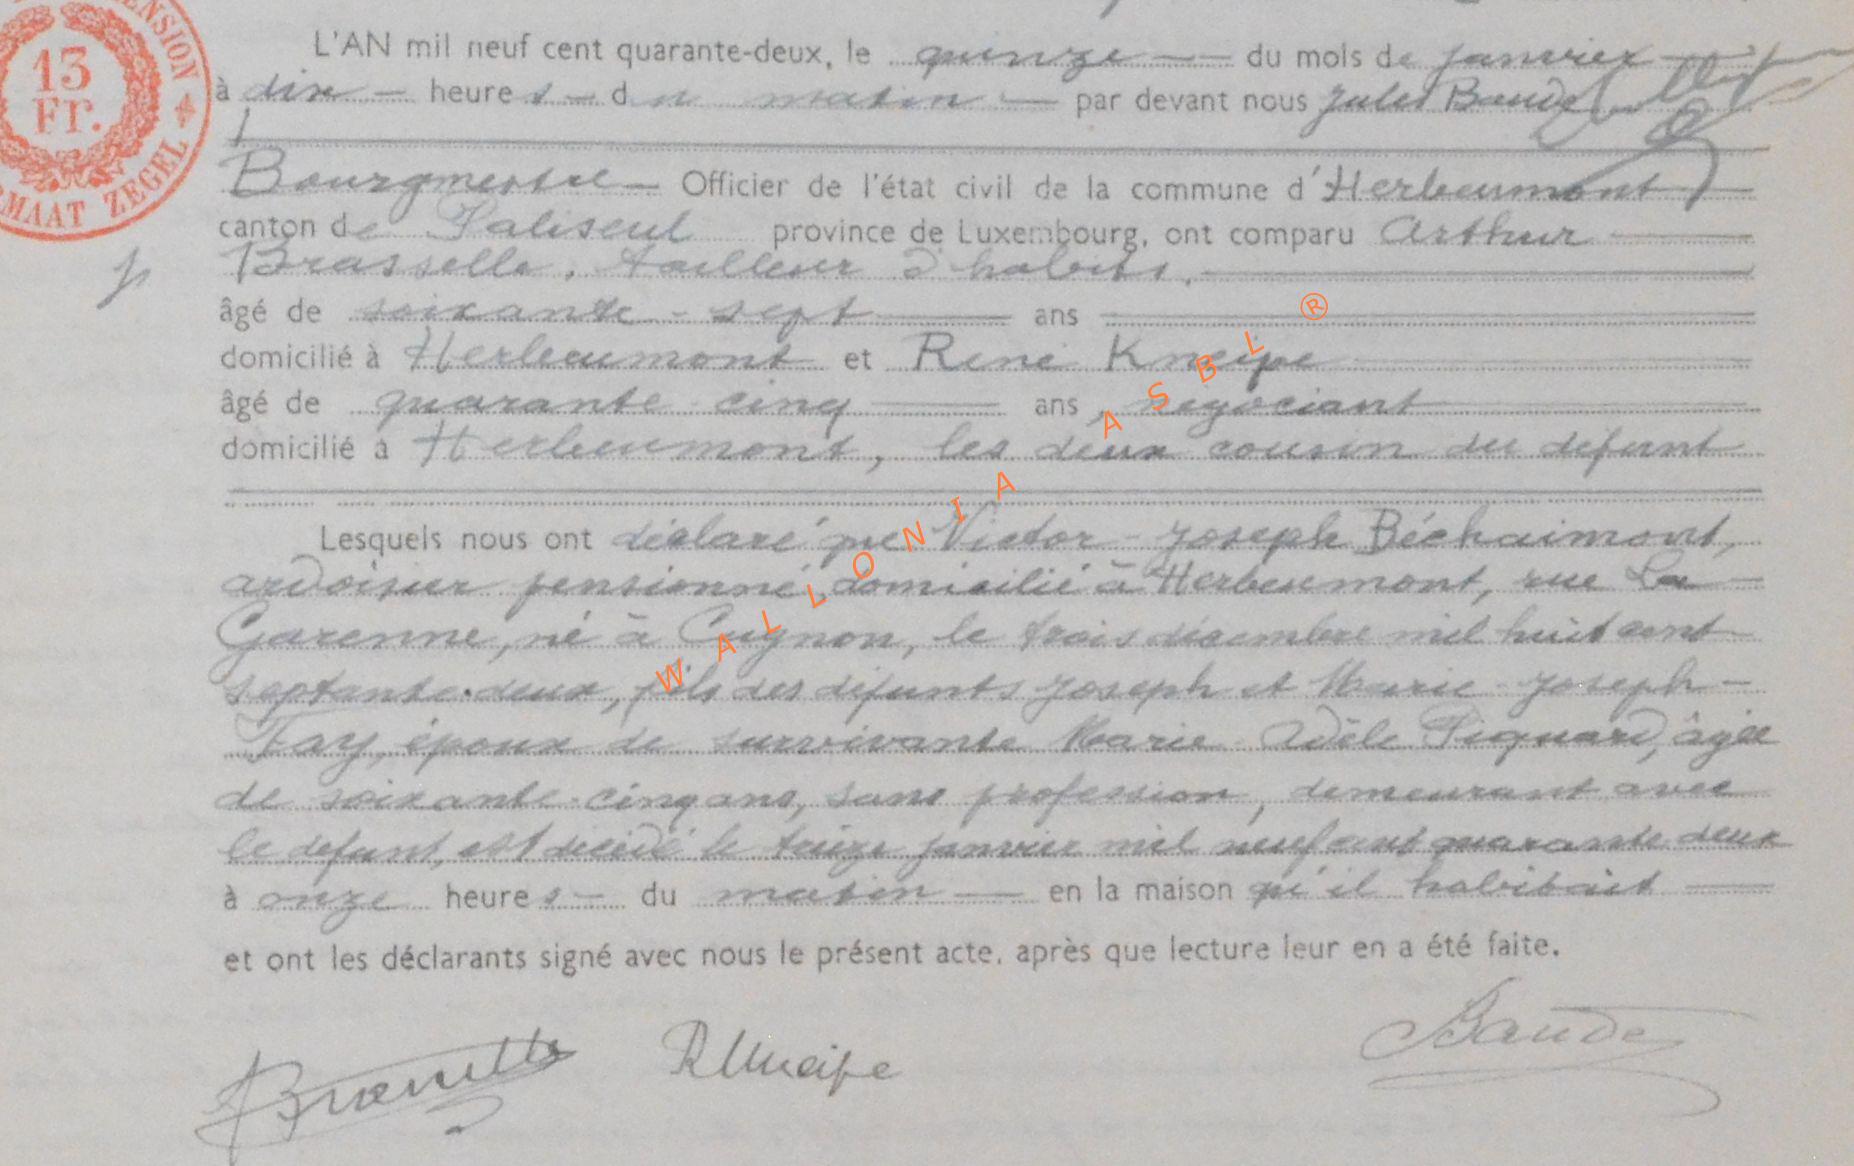 PENSION
13
Fr.
FORMAAT ZEGEL
L'AN mil neuf cent quarante-deux, le quinze — du mois de janvier —
à dix — heures — du matin — par devant nous Jules Baude
Bourgmestre — Officier de l'état civil de la commune d'Herbeumont
canton de Paliseul province de Luxembourg, ont comparu Arthur —
Brasselle, tailleur d'habits, —
âgé de soixante-sept — ans —
domicilié à Herbeumont et René Kneipe
âgé de quarante cinq — ans, négociant
domicilié à Herbeumont, les deux cousin du défunt
Lesquels nous ont déclaré que Victor-Joseph Béchaimont,
ardoisier pensionné, domicilié à Herbeumont, rue La —
Garenne, né à Cugnon, le trois décembre mil huit cent
septante-deux, fils des défunts Joseph et Marie-Joseph —
Fay, époux de survivante Marie-Adèle Piquard, âgée
de soixante-cinq ans, sans profession, demeurant avec
le défunt, est décédé le treize janvier mil neuf cent quarante deux
à onze heures — du matin — en la maison qu'il habitait —
et ont les déclarants signé avec nous le présent acte, après que lecture leur en a été faite.
ABrasselle RKneipe Baude
WALLONIA ASBL ®